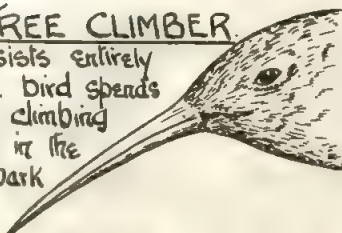 TREE CLIMBER.
sists entirely
bird spends
climbing
in the
bark